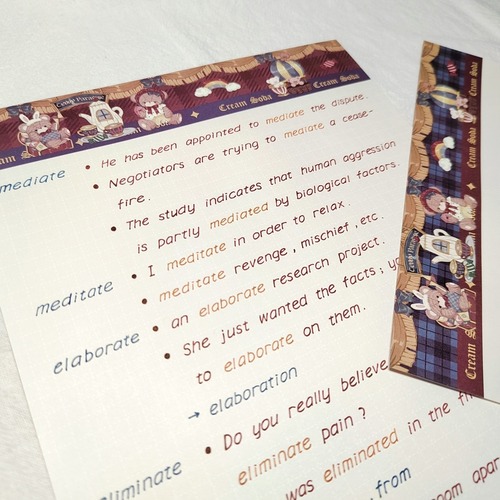 Cream Soda
Cream Soda
mediate
• He has been appointed to mediate the dispute
• Negotiators are trying to mediate a cease-
fire.
• The study indicates that human aggression
is partly mediated by biological factors.
meditate
• I meditate in order to relax.
• meditate revenge, mischief, etc.
elaborate
• an elaborate research project.
• She just wanted the facts; 
to elaborate on them.
→ elaboration
eliminate
• Do you really believe
eliminate pain?
was eliminated in the
from
Cream Soda
Cream Soda
Cream Soda